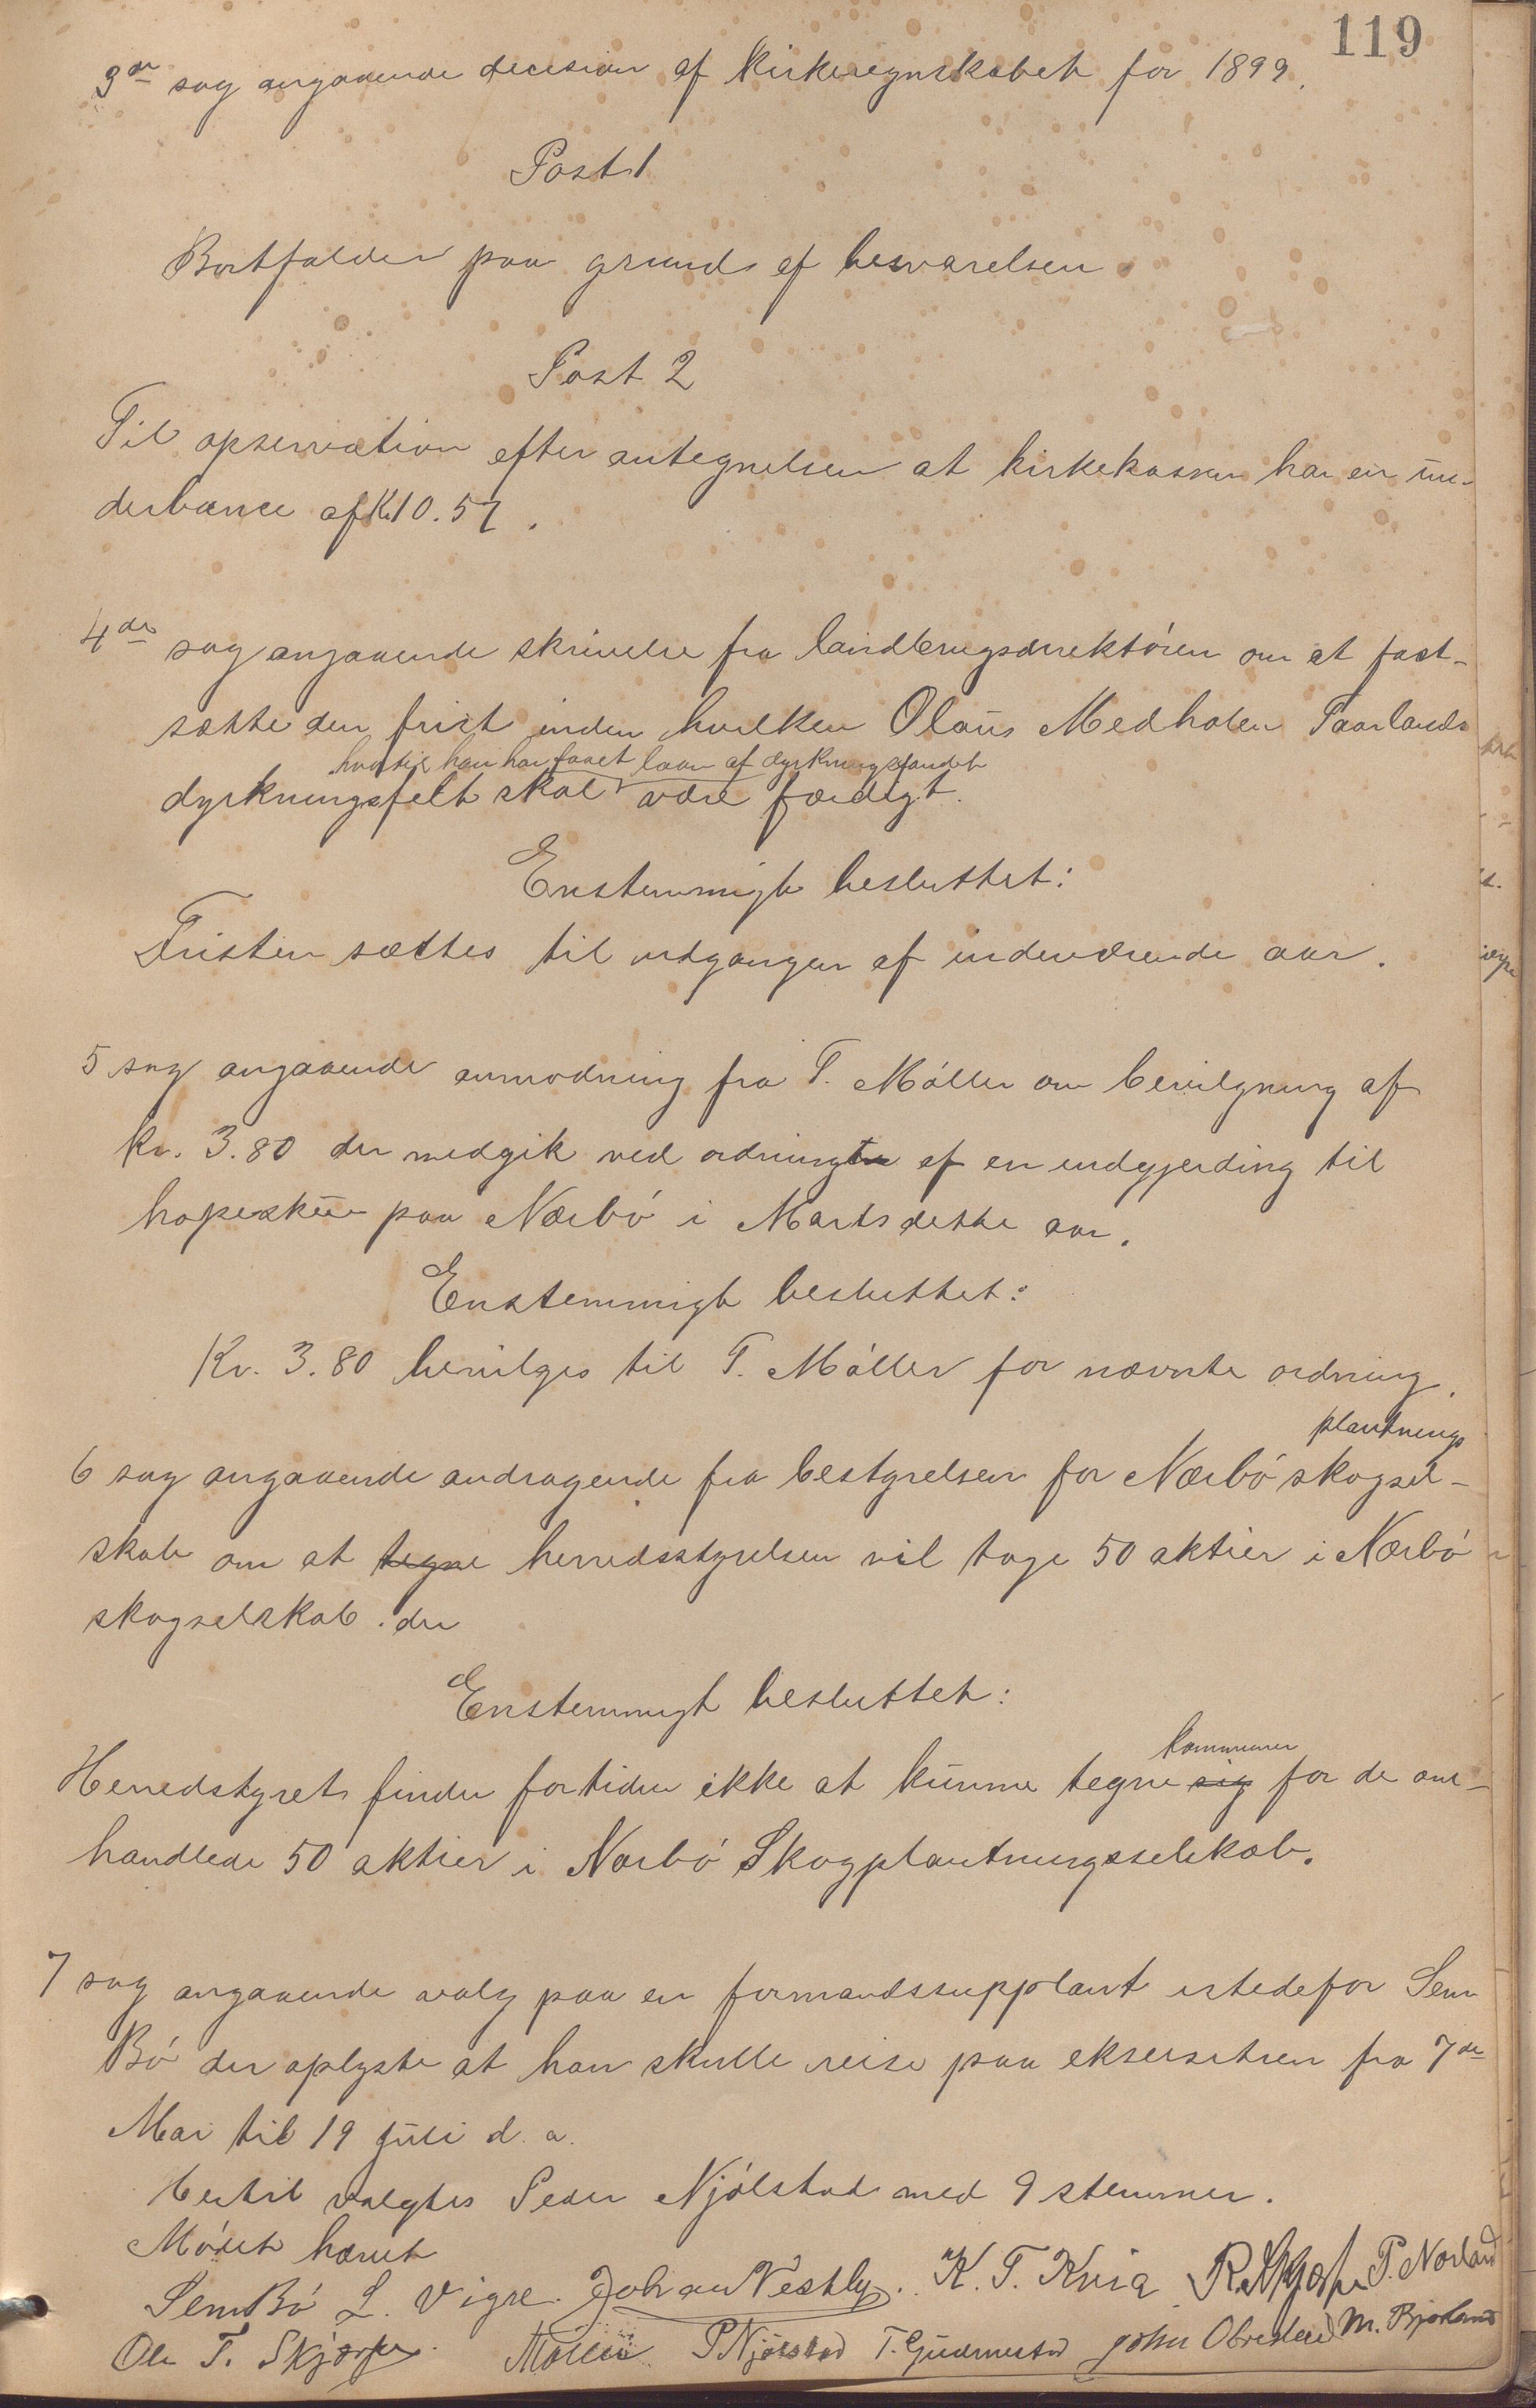 119
3die sag angaaende decision af Kirkeregnskabet for 1899.
Post 1
Bortfalder paa grund af besvarelsen
Post 2
Til opservation efter antegnelsen at kirkekassen har en un-
derbance af Kr 10.57.
4de sag angaaende skrivelse fra landbrugsdirektören om at fast-
sætte den frist inden hvilken Olaus Medholen Paarlands
hvortil han har faaet laan af dyrkningsfondet
dyrkningsfelt skal være færdigt.
Enstemmigt besluttet:
Fristen sættes til udgangen af indeværende aar.
5 sag angaaende anmodning fra T. Möller om bevilgning af
kr. 3.80 der medgik ved ordningen af en indgjerding til
hopeskur paa Nærbö i Marts dette aar.
Enstemmigt besluttet:
Kr. 3.80 bevilges til T. Möller for nævnte ordning.
plantnings
6 sag angaaende andragende fra bestyrelsen for Nærbö skogsel-
skab om at tegne herredsstyrelsen vil tage 50 aktier i Nærbö
skogselskab. der
Enstemmigt besluttet:
kommunen
Herredstyret finder for tiden ikke at kunne tegne sig for de om-
handlede 50 aktier i Nærbö Skogplantningsselskab.
7 sag angaaende valg paa en formandssupplant istedefor Sem
Bö der oplyste at han skulle reise paa eksersitsen fra 7de
Mai til 19 Juli d. a.
Dertil valgtes Peder Njölstad med 9 stemmer.
Mödet hævet
Sem Bö L. Vigre. Johan Vestly. K. T. Kvia R. Skjærpe P. Nærland
Ole T. Skjærpe. Möller P Njölstad T. Gudmestad John Obrestad M. Bjorland